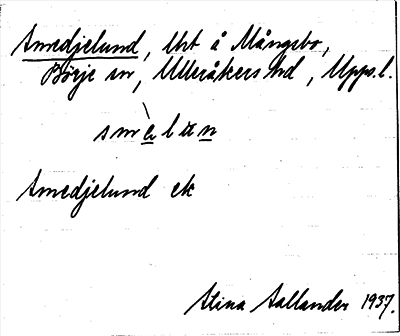 Smedjelund, lht å Mångsbo,
Börje sn, Ulleråkers hd, Uppl.
smèlun
Smedjelund ek
Stina Sallander 1937.